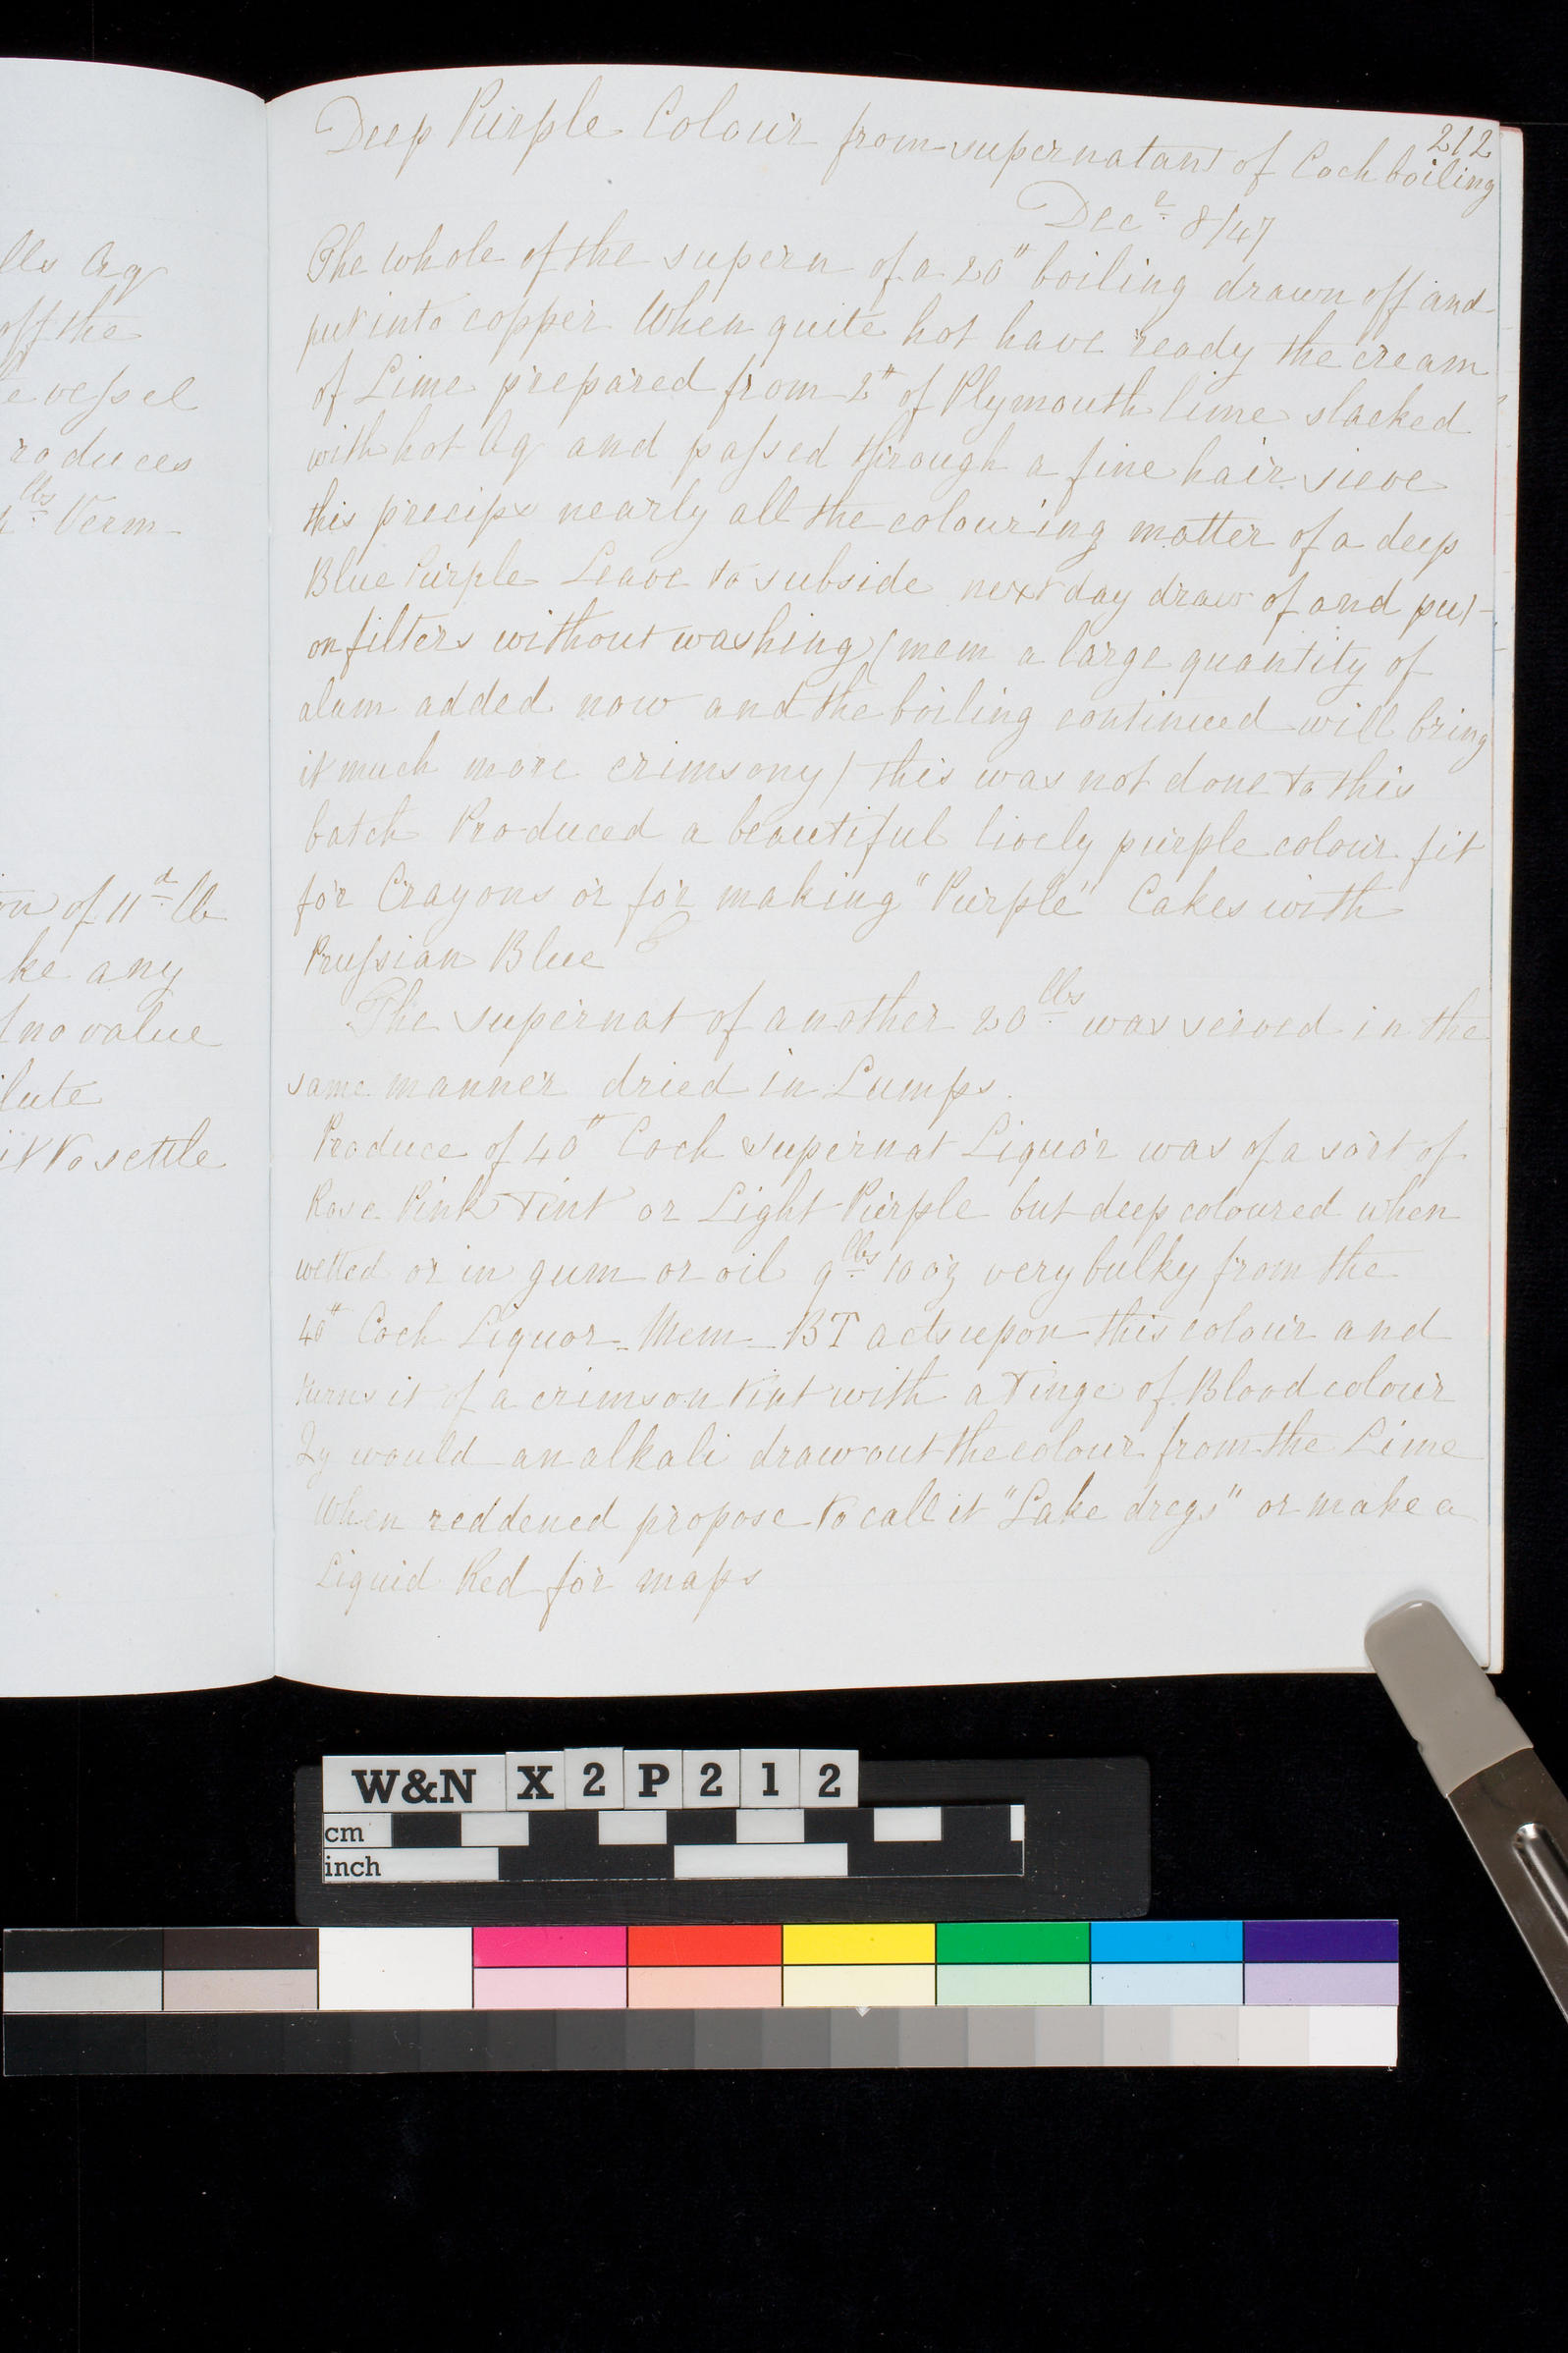 lls Aq
off the
e vessel
roduces
lbs Verm
on of 11d lb
ke any
no value
lute
it to settle
212
Deep Purple Colour from supernatant of Coch boiling
Decr 8/47
The whole of the supern of a 20" boiling drawn off and
put into copper When quite hot have ready the cream
of Lime prepared from 2" of Plymouth lime slacked
with hot Aq and passed through a fine hair sieve
this precips nearly all the colouring matter of a deep
Blue Purple Leave to subside next day draw of and put
on filters without washing (mem a large quantity of
alum added now and the boiling continued will bring
it much more crimsony) this was not done to this
batch Produced a beautiful lively purple colour fit
for Crayons or for making "Purple" Cakes with
Prussian Blue
The supernat of another 20 lbs was served in the
same manner dried in Lumps.
Produce of 40" Coch supernat Liquor was of a sort of
Rose Pink Tint or Light Purple but deep coloured when
wetted or in gum or oil 9 lbs 10 oz very bulky from the
40" Coch Liquor - Mem - BT acts upon this colour and
turns it of a crimson tint with a Tinge of Blood colour
Qy would an alkali draw out the colour from the Lime
When reddened propose to call it "Lake dregs" or make a
Liquid Red for maps
W&N X2P212
cm
inch